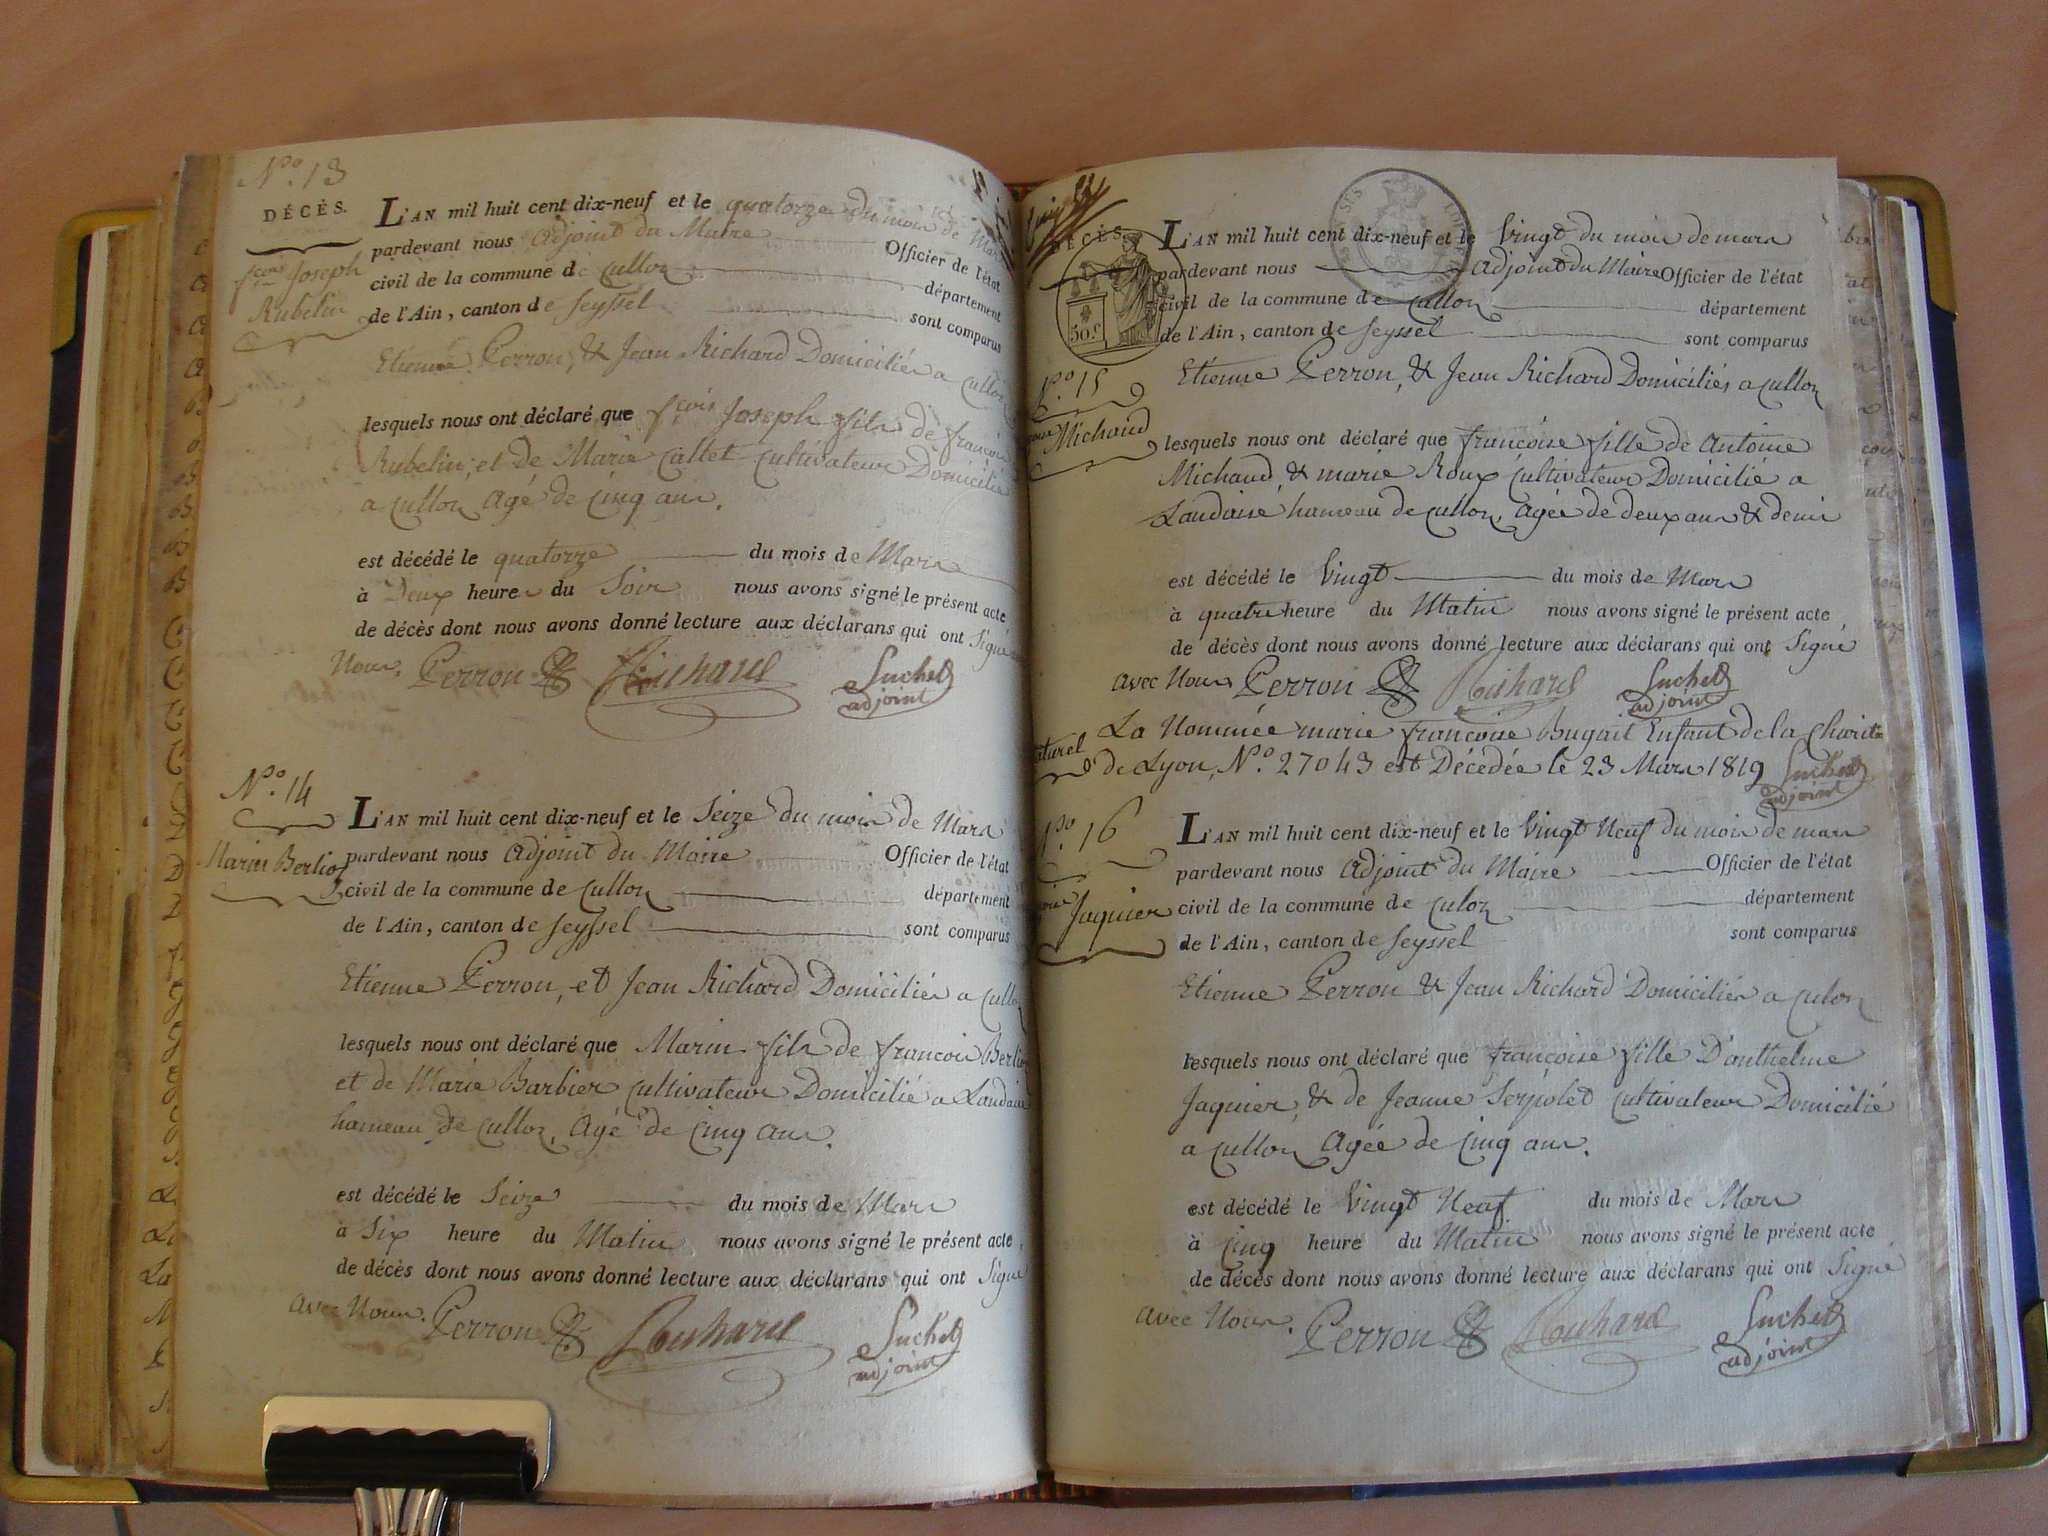 N.º 13
DÉCÈS.
f.çois Joseph
Rubelin
L'AN mil huit cent dix-neuf et le quatorze du mois de Mars
pardevant nous Adjoint du Maire Officier de l'état
civil de la commune de Culloz département
de l'Ain, canton de Seyssel sont comparus
Etienne Perron, & Jean Richard Domiciliés a Culloz
lesquels nous ont déclaré que f.çois Joseph fils de françois
Rubelin, et de Marie Callet Cultivateurs Domicilié
a Culloz Agé de Cinq ans.
est décédé le quatorze du mois de Mars
à Deux heures du Soir nous avons signé le présent acte
de décès dont nous avons donné lecture aux déclarans qui ont Signé
Nous. Perron Richard Suchet
adjoint
N.º 14
Marin Berlioz
L'AN mil huit cent dix-neuf et le Seize du mois de Mars
pardevant nous Adjoint du Maire Officier de l'état
civil de la commune de Culloz département
de l'Ain, canton de Seyssel sont comparus
Etienne Perron, et Jean Richard Domiciliés a Culloz
lesquels nous ont déclaré que Marin fils de francois Berlioz
et de Marie Barbier Cultivateurs Domicilié a Landaise
hameau de Culloz, Agé de Cinq ans.
est décédé le Seize du mois de Mars
à Six heure du Matin nous avons signé le présent acte
de décès dont nous avons donné lecture aux déclarans qui ont Signé
avec Nous. Perron Richard Suchet
adjoint
DÉCÈS.
50 c.
L'AN mil huit cent dix-neuf et le Vingt du mois de mars
pardevant nous Adjoint du Maire Officier de l'état
civil de la commune de Culloz département
de l'Ain, canton de Seyssel sont comparus
Etienne Perron, & Jean Richard Domiciliés a Culloz
N.º 15
Michaud
lesquels nous ont déclaré que françoise fille de Antoine
Michaud, & marie Roux Cultivateurs Domicilié a
Landaise hameau de Culloz, Agée de deux ans & demi
est décédé le Vingt du mois de Mars
à quatre heure du Matin nous avons signé le présent acte
de décès dont nous avons donné lecture aux déclarans qui ont Signé
avec Nous Perron Richard Suchet
adjoint
naturel La Nommée marie françoise Bugnit Enfant de la Charité
de Lyon, N.º 27043 est Décédée le 23 Mars 1819 Suchet
adjoint
N.º 16
Jaquier
L'AN mil huit cent dix-neuf et le Vingt Neuf du mois de mars
pardevant nous Adjoint du Maire Officier de l'état
civil de la commune de Culoz département
de l'Ain, canton de Seyssel sont comparus
Etienne Perron & Jean Richard Domiciliés a Culoz
lesquels nous ont déclaré que françoise fille D'anthelme
Jaquier, & de Jeanne Serpolet Cultivateurs Domicilié
a Culloz Agée de Cinq ans.
est décédé le Vingt Neuf du mois de Mars
à Cinq heure du Matin nous avons signé le présent acte
de décès dont nous avons donné lecture aux déclarans qui ont Signé
avec Nous. Perron Richard Suchet
adjoint